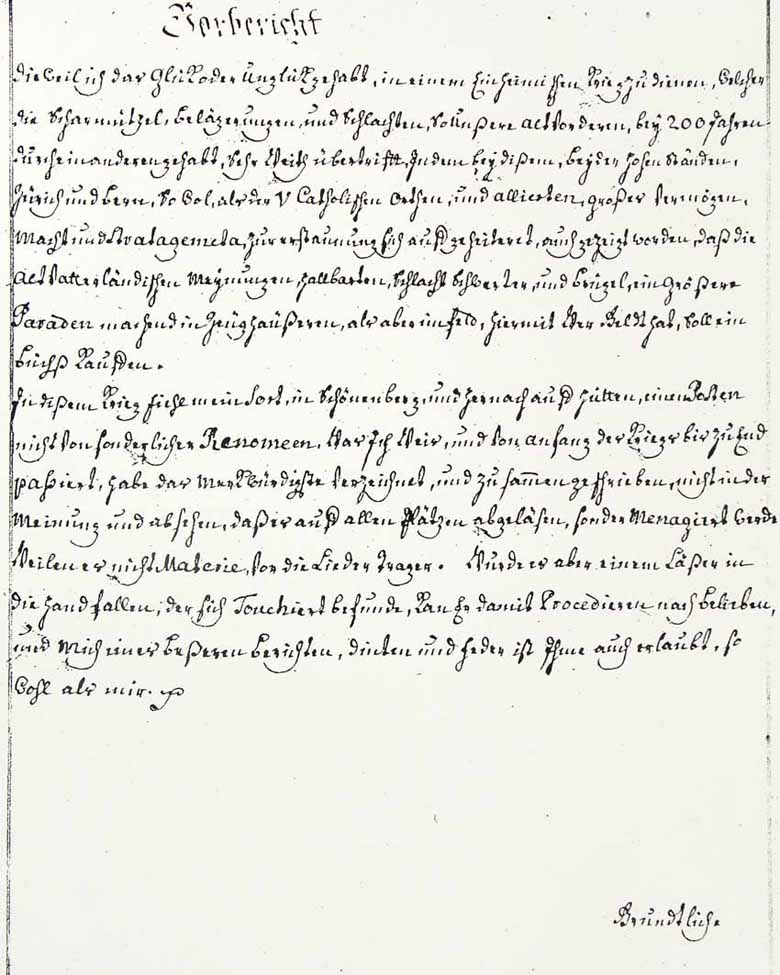 Vorbericht
Dieweil ich das Glük oder Unglük gehabt, in einem Einheimischen Krieg zu dienen, Welcher
die Scharmützel, Belägerungen, und Schlachten, so Unßere Altvorderen, bey 200 Jahren
durch einanderen gehabt, Sehr Weith übertrifft, Indem bey dißem, beyder hohen Ständen,
Zürich und Bern, So Wol, als der V Catholischen Orthen, und allierten, großes Vermögen,
Macht und Stratagemeta, zur erstaunung sich auff geheiteret, auch gezeigt worden, daß die
Alt Vatterländischen Meynungen, Hallbarten, Schlacht Schwerter, und Brügel, ein größere
Paraden machend in Zeüghäußeren, als aber im feld, hiermit Wer Geldt hat, Soll ein
Büchß Kauffen.
In dißem Krieg fiehle mein Sort, in Schönenberg, und hernach auff Hütten, einen Posten
nicht von sonderlicher Renomeen, Was Ich Weis, und von anfang des Kriegs bis zu End
paßiert, habe das Merkwürdigste Verzeichnet, und zu sammen geschrieben, nicht in der
Meinung und absehen, daß es auff allen Plätzen abgeläsen, sonder Menagiert Werde
Weilen es nicht Materie, vor die Lieder Trager. Wurde es aber einem Läßer in
die Hand fallen, der sich Touchiert befunde, Kan Er damit Procedieren nach belieben,
und Mich eines beßeren berichten, dinten und feder ist Ihme auch erlaubt, so
Wohl als mir.
Grundtliche